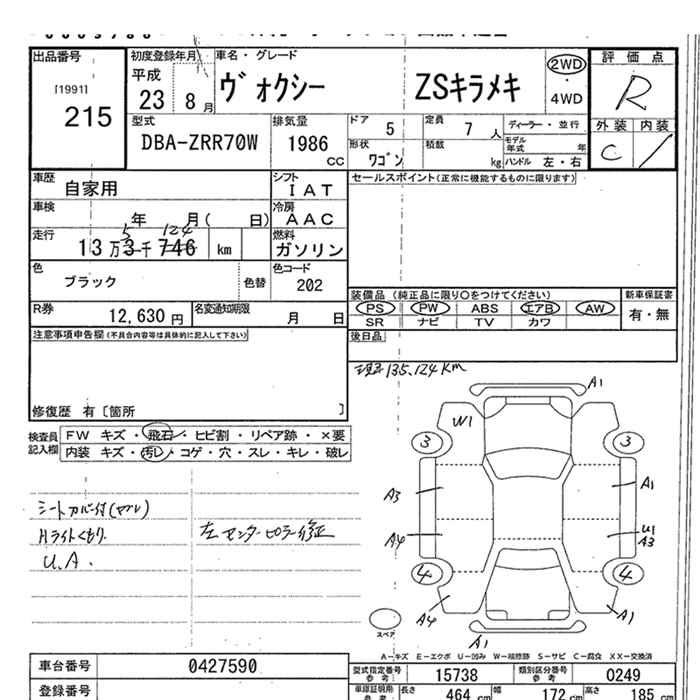 出品番号
[1991]
215
初度登録年月
平成
23 8月
車名・グレード
ヴォクシー ZSキラメキ
2WD
・
4WD
評価点
R
外装 内装
C /
型式
DBA-ZRR70W
排気量
1986
CC
ドア
5
定員
7 人
ディーラー・並行
形状
ワゴン
積載
kg
モデル年式 年
ハンドル 左・右
車歴
自家用
シフト
IAT
セールスポイント(正常に機能するものに限ります)
車検
年 月( 日)
冷房
AAC
走行
5 124
13万3千746 km
燃料
ガソリン
色
ブラック
色替
色コード
202
装備品 (純正品に限り○をつけてください)
新車保証書
PS PW ABS エアB AW
有・無
SR ナビ TV カワ
R券
12,630円
名変通知期限
月 日
後日品
注意事項申告欄(不具合内容等は具体的に記入して下さい)
現 135,124 Km
修復歴 有[箇所 ]
検査員記入欄
FW キズ・飛石・ヒビ割・リペア跡・×要
内装 キズ・汚レ・コゲ・穴・スレ・キレ・破レ
シートカバー付(マメレ)
Hライトくもり.
U.A.
左センターピラー修正
A1
W1
3 3
A3 A1
A4 U1
A3
4 4
A4 A1
スペア
A1
A-キズ E-エクボ U-凹み W-補修跡 S-サビ C-腐食 XX-交換済
車台番号
0427590
型式指定番号
参考
15738
類別区分番号
参考
0249
登録番号
車庫証明用
参考
長さ 464 cm 幅 172 cm 高さ 185 cm